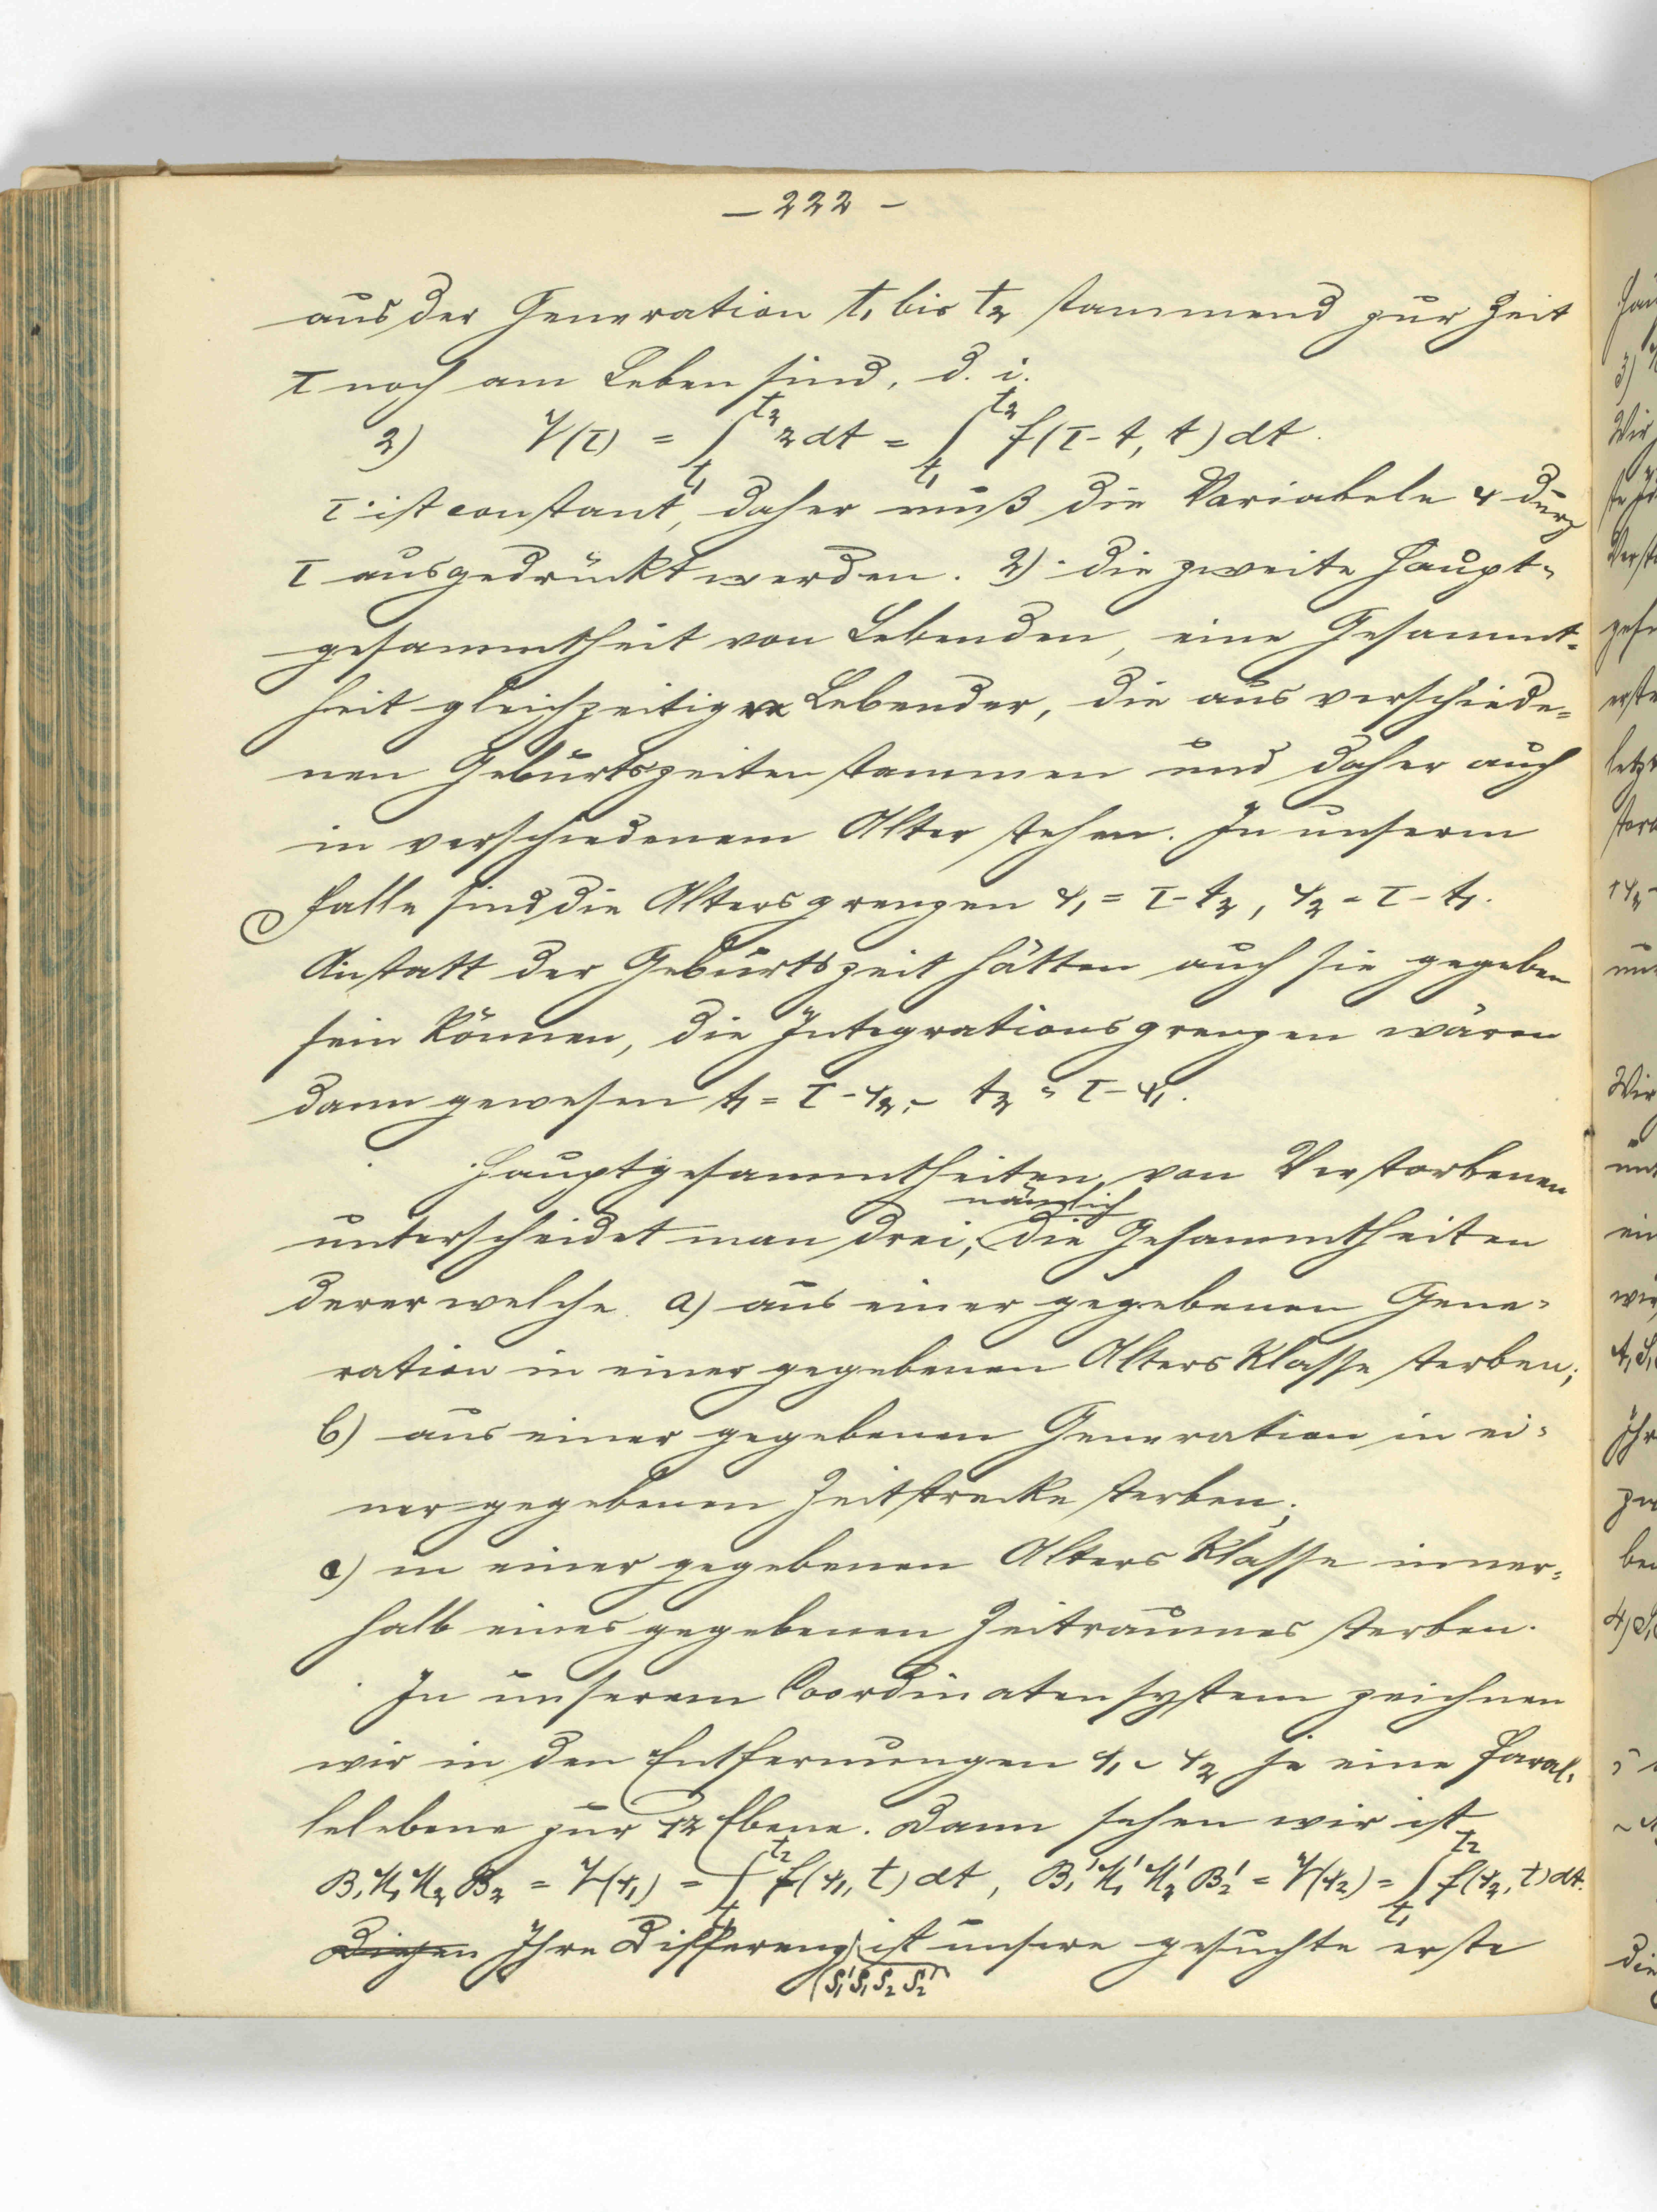 — 222 —
aus der Generation t₁ bis t₂ stammend zur Zeit
τ noch am Leben sind, d. i.
2) V(τ) = ∫_{t₁}^{t₂} z dt = ∫_{t₁}^{t₂} f(τ-t, t) dt.
τ ist constant, daher muß die Variabele x durch
τ ausgedrückt werden. 2) die zweite Haupt-
gesammtheit von Lebenden, eine Gesammt-
heit gleichzeitig Lebender, die aus verschiede-
nen Geburtszeiten stammen und daher auch
in verschiedenem Alter stehen. In unserm
Falle sind die Altersgrenzen x₁ = τ-t₂, x₂ = τ-t₁.
Anstatt der Geburtszeit hätten auch sie gegeben
sein können, die Integrationsgrenzen wären
dann gewesen t₁ = τ-x₂, t₂ = τ-x₁.
Hauptgesammtheiten von Verstorbenen
nämlich
unterscheidet man drei, die Gesammtheiten
derer welche a) aus einer gegebenen Gene-
ration in einer gegebenen Altersklasse sterben;
b) aus einer gegebenen Generation in ei-
ner gegebenen Zeitstrecke sterben;
c) in einer gegebenen Altersklasse inner-
halb eines gegebenen Zeitraumes sterben.
In unserem Coordinatensystem zeichnen
wir in den Entfernungen x₁ x₂ je eine Paral-
lelebene zur tz Ebene. Dann sehen wir ist
B₁N₁N₂B₂ = V(x₁) = ∫_{t₁}^{t₂} f(x₁, t) dt, B₁'N₁'N₂'B₂' = V(x₂) = ∫_{t₁}^{t₂} f(x₂, t) dt.
Diesen Ihre Differenz ist unsere gesuchte erste
(S₁'S₁S₂S₂')